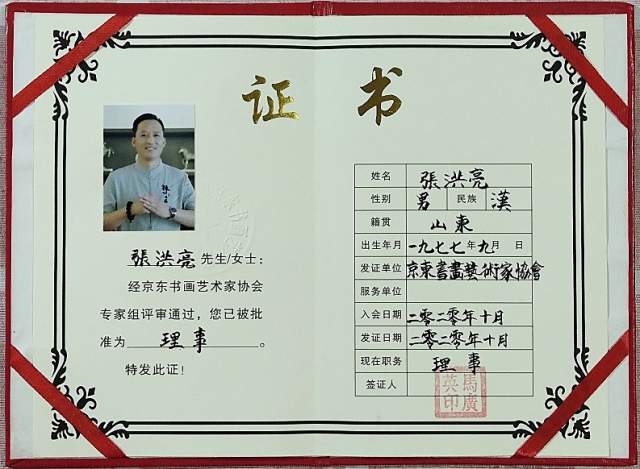 证 书
張洪亮 先生/女士：
经京东书画艺术家协会
专家组评审通过，您已被批
准为 理事 。
特发此证！
姓名 張洪亮
性别 男 民族 漢
籍贯 山東
出生年月 一九七七年九月 日
发证单位 京東書畫藝術家協會
服务单位
入会日期 二零二零年十月
发证日期 二零二零年十月
现在职务 理事
签证人
馬廣英印